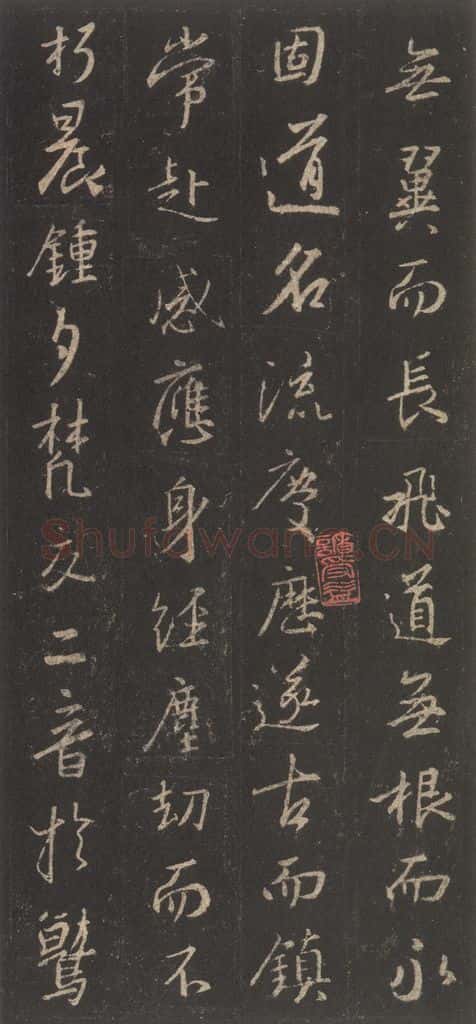 无翼而長飛道無根而永
固道名流慶歷遂古而鎮
常赴感應身經塵劫而不
朽晨鍾夕梵交二音於鷲
Shufawang.CN